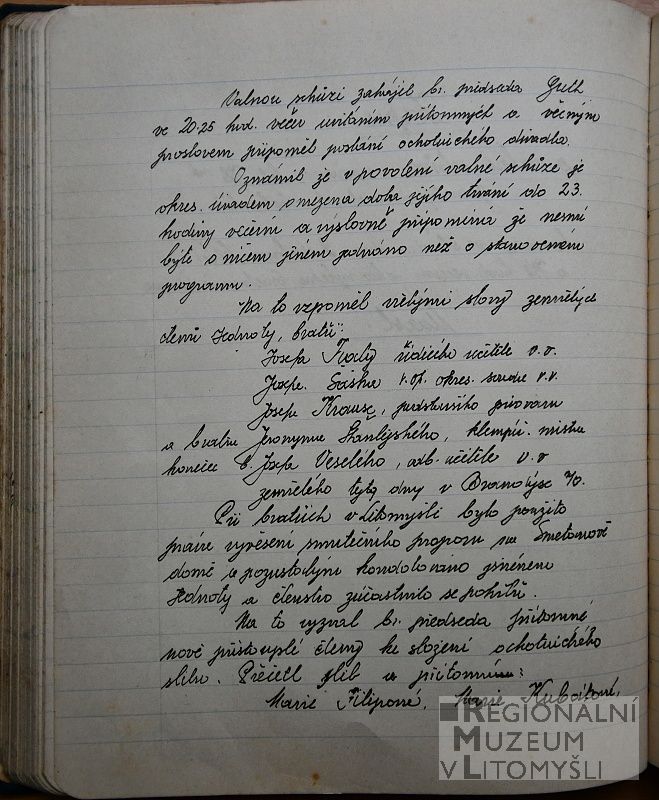 Valnou schůzi zahájil br. předseda Guth
ve 20.25 hod. večer uvítáním přítomných a věcným
proslovem připoměl poslání ochotnického divadla.
Oznámil že v povolení valné schůze je
okres. úřadem omezena doba jejího trvání do 23.
hodiny večerní a výslovně připomíná že nesmí
býti o ničem jiném jednáno než o stanoveném
programu.
Na to vzpoměl vřelými slovy zemřelých
členů Jednoty, bratří:
Josefa řídícího učitele v.v.
Josefa Šáška okres. soudu v.v.
Josefa Krause, pivovaru
a bratra Jeronyma klempíř. mistra
konečně b. Josefa Veselého, odb. učitele v.v
zemřelého tyto dny v Brandýse n/O.
Při bratřích v Litomyšli bylo použito
práva vyvěšení smutečního praporu na Smetanově
domě a pozůstalým kondolováno jménem
Jednoty a členstvo zúčastnilo se pohřbů.
Na to vyzval br. předseda přítomné
nově přistouplé členy ke složení ochotnického
slibu. Přečetl slib a přítomní:
Marie Filipová, Marie Kubátová,
REGIONÁLNÍ
MUZEUM
V LITOMYŠLI